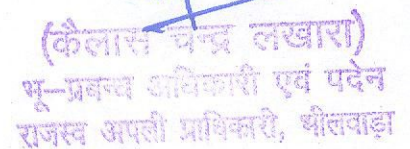 (कैलाश चन्द्र लखारा)
भू–प्रबन्ध अधिकारी एवं पदेन
राजस्व अपील प्राधिकारी, भीलवाड़ा